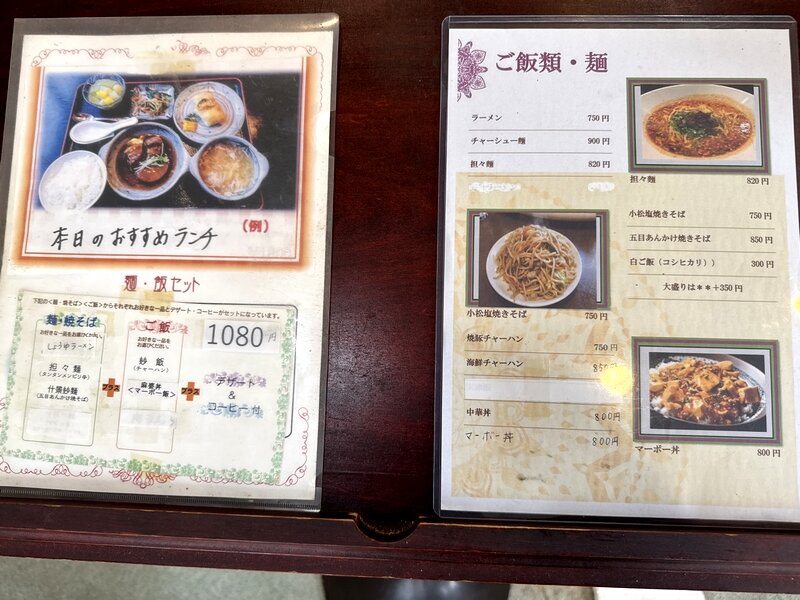 本日のおすすめランチ
(例)
麺・飯セット
下記の<麺・焼そば><ご飯>からそれぞれお好きな一品とデザート・コーヒーがセットになっています。
麺・焼そば
お好きな一品をお選びください。
しょうゆラーメン
担々麺
(タンタンメンピリ辛)
什景炒麺
(五目あんかけ焼そば)
プラス
ご飯
お好きな一品を
お選びください。
炒飯
(チャーハン)
麻婆丼
<マーボー飯>
プラス
1080円
デザート
&
コーヒー付
ご飯類・麺
ラーメン 750円
チャーシュー麺 900円
担々麺 820円
担々麺 820円
小松塩焼きそば 750円
五目あんかけ焼きそば 850円
白ご飯(コシヒカリ)) 300円
大盛りは**+350円
小松塩焼きそば 750円
焼豚チャーハン 750円
海鮮チャーハン 850円
中華丼 800円
マーボー丼 800円
マーボー丼 800円